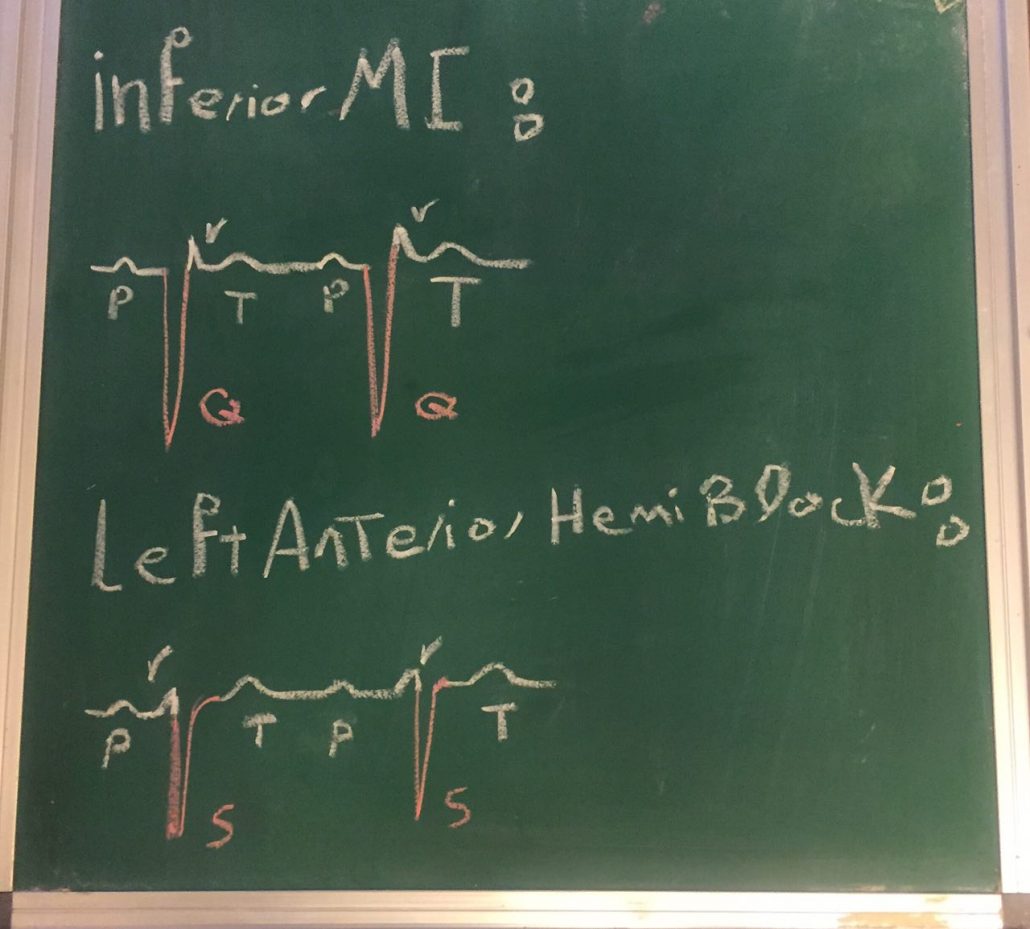 inferior MI:
r r
P T P T
Q Q
Left Anterior HemiBlock:
r r
P T P T
S S